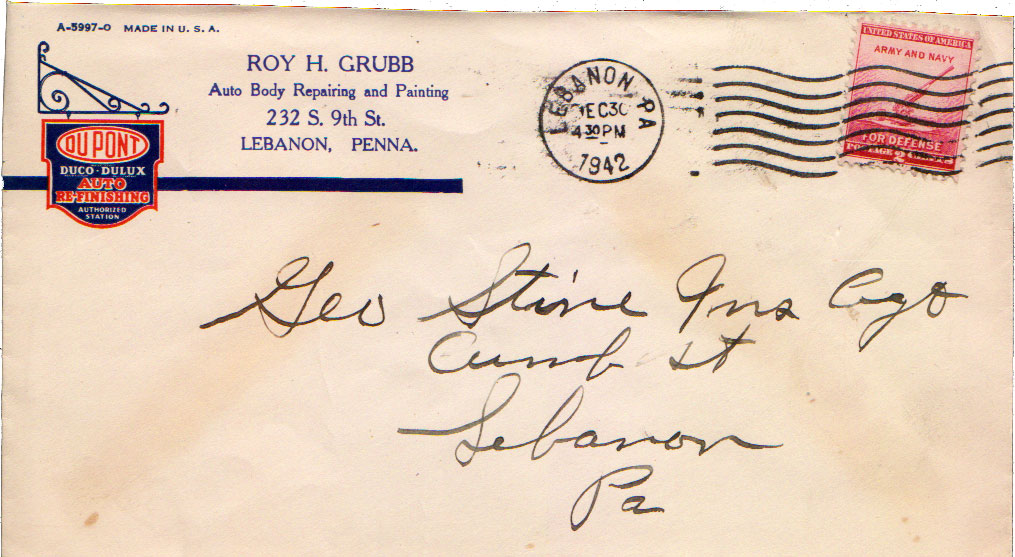 A-5997-O MADE IN U. S. A.
ROY H. GRUBB
Auto Body Repairing and Painting
232 S. 9th St.
LEBANON, PENNA.
DU PONT
DUCO-DULUX
AUTO
RE-FINISHING
AUTHORIZED
STATION
LEBANON PA
DEC 30
4 30 PM
1942
UNITED STATES OF AMERICA
ARMY AND NAVY
FOR DEFENSE
2
Geo Stine Ins Agt
Cumb St
Lebanon
Pa